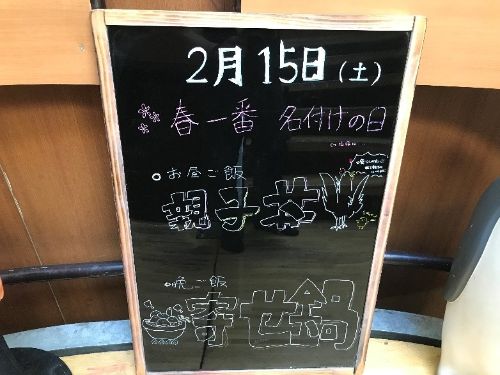 2月15日(土)
春一番 名付けの日
お昼ご飯
親子丼
晩ご飯
寄せ鍋